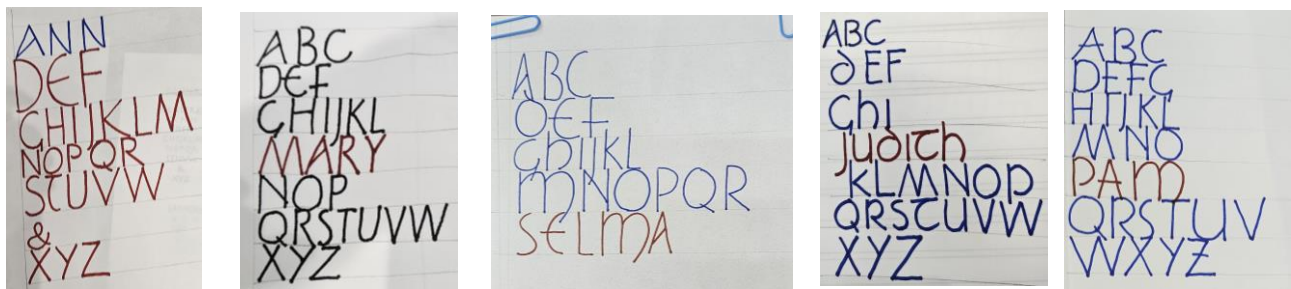 ANN
DEF
GHIJKLM
NOPQR
STUVW
&
XYZ
ABC
DEF
GHIJKL
MARY
NOP
QRSTUVW
XYZ
ABC
DEF
GhIJKL
MNOPQR
SELMA
ABC
dEF
GhI
Judith
KLMNOP
QRSTUVW
XYZ
ABC
DEFG
HIJKL
MNO
PAM
QRSTUV
WXYZ